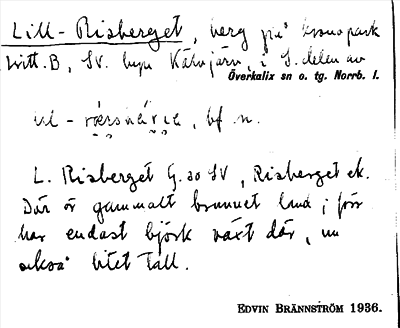 Lill-Risberget, berg på kronopark
Svitt. B, SV. byn Kälvjärv, i S. delen av
Överkalix sn o. tg. Norrb. l.
bf n.
L. Risberget G. 30 SV, Risberget ek.
Där är gammalt brunnet land; förr
har endast björk växt där, nu
också litet tall.
EDVIN BRÄNNSTRÖM 1936.